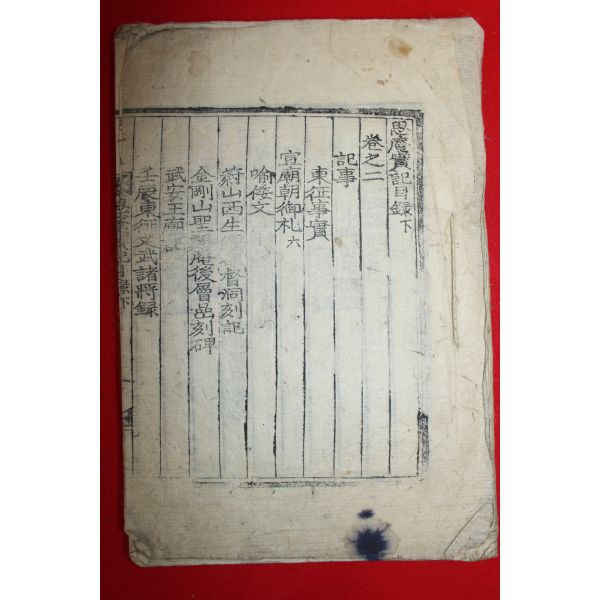 思庵實記目錄 下
卷之二
記事
東征事實
宣廟朝御札 六
喩倭文
蔚山西生 督洞刻記
金剛山聖 庵後層嵒刻碑
武安王廟記
壬辰東征文武諸將錄